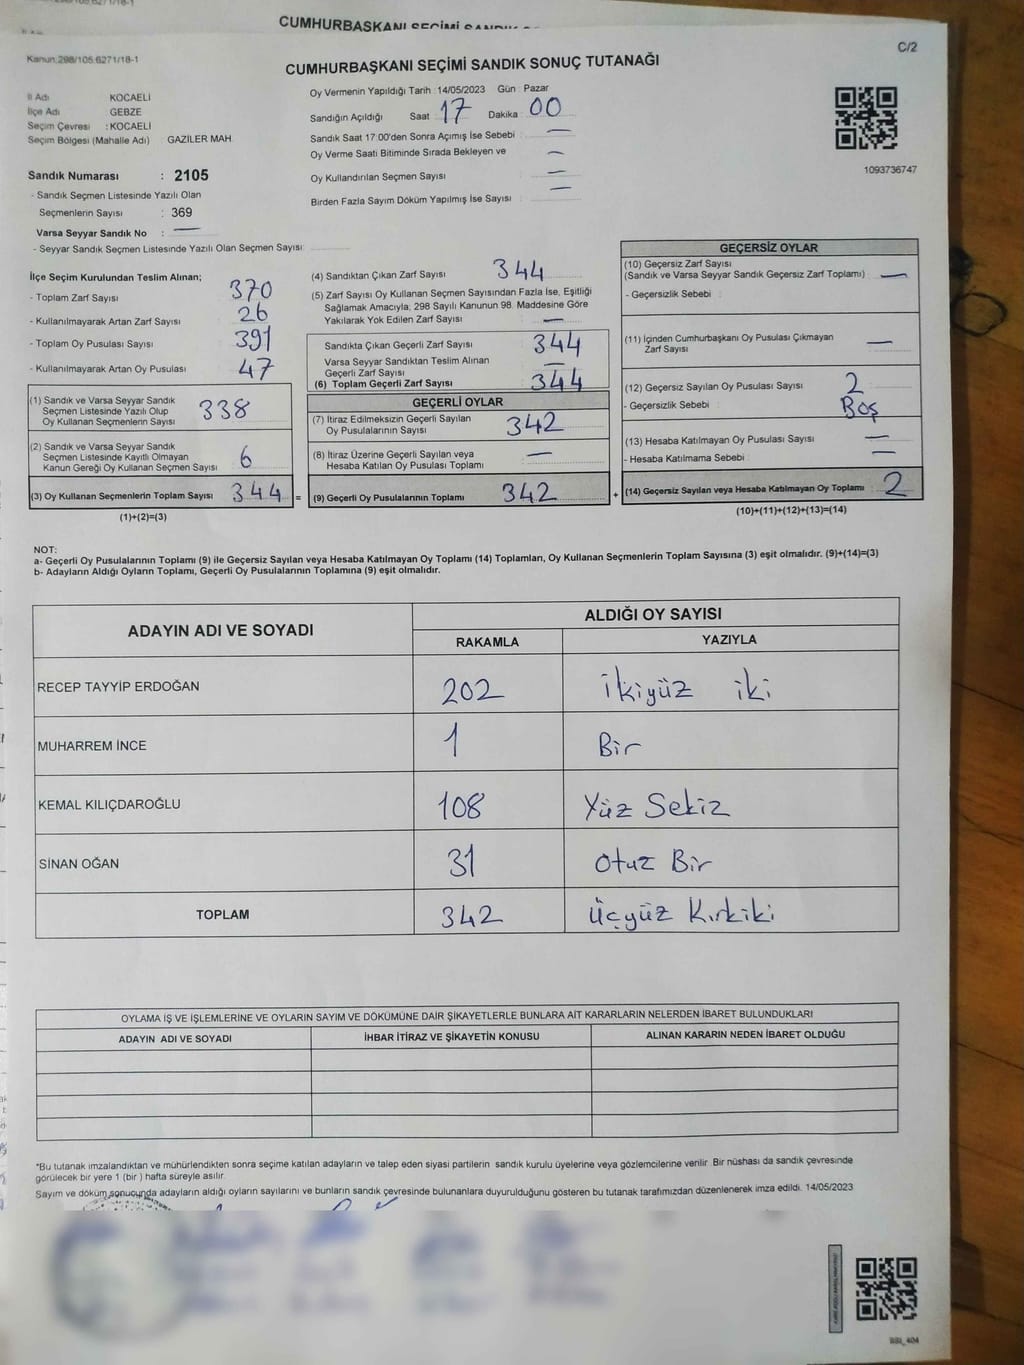 CUMHURBAŞKANI SEÇİMİ
Kanun:298/105.6271/18-1
C/2
CUMHURBAŞKANI SEÇİMİ SANDIK SONUÇ TUTANAĞI
İl Adı KOCAELİ
İlçe Adı GEBZE
Seçim Çevresi : KOCAELİ
Seçim Bölgesi (Mahalle Adı) : GAZİLER MAH.
Oy Vermenin Yapıldığı Tarih : 14/05/2023 Gün : Pazar
Sandığın Açıldığı Saat : 17 Dakika : 00
Sandık Saat 17:00'den Sonra Açımış İse Sebebi : —
Oy Verme Saati Bitiminde Sırada Bekleyen ve —
Oy Kullandırılan Seçmen Sayısı : —
Birden Fazla Sayım Döküm Yapılmış İse Sayısı : —
1093736747
Sandık Numarası : 2105
- Sandık Seçmen Listesinde Yazılı Olan
Seçmenlerin Sayısı : 369
Varsa Seyyar Sandık No : —
- Seyyar Sandık Seçmen Listesinde Yazılı Olan Seçmen Sayısı:
İlçe Seçim Kurulundan Teslim Alınan;
- Toplam Zarf Sayısı : 370
- Kullanılmayarak Artan Zarf Sayısı : 26
- Toplam Oy Pusulası Sayısı : 391
- Kullanılmayarak Artan Oy Pusulası : 47
(1) Sandık ve Varsa Seyyar Sandık
Seçmen Listesinde Yazılı Olup
Oy Kullanan Seçmenlerin Sayısı : 338
(2) Sandık ve Varsa Seyyar Sandık
Seçmen Listesinde Kayıtlı Olmayan
Kanun Gereği Oy Kullanan Seçmen Sayısı : 6
(3) Oy Kullanan Seçmenlerin Toplam Sayısı : 344 =
(1)+(2)=(3)
(4) Sandıktan Çıkan Zarf Sayısı : 344
(5) Zarf Sayısı Oy Kullanan Seçmen Sayısından Fazla İse, Eşitliği
Sağlamak Amacıyla; 298 Sayılı Kanunun 98. Maddesine Göre
Yakılarak Yok Edilen Zarf Sayısı : —
Sandıkta Çıkan Geçerli Zarf Sayısı : 344
Varsa Seyyar Sandıktan Teslim Alınan
Geçerli Zarf Sayısı : —
(6) Toplam Geçerli Zarf Sayısı : 344
GEÇERLİ OYLAR
(7) İtiraz Edilmeksizin Geçerli Sayılan
Oy Pusulalarının Sayısı : 342
(8) İtiraz Üzerine Geçerli Sayılan veya
Hesaba Katılan Oy Pusulası Toplamı : —
(9) Geçerli Oy Pusulalarının Toplamı : 342 +
GEÇERSİZ OYLAR
(10) Geçersiz Zarf Sayısı
(Sandık ve Varsa Seyyar Sandık Geçersiz Zarf Toplamı) : —
- Geçersizlik Sebebi :
(11) İçinden Cumhurbaşkanı Oy Pusulası Çıkmayan
Zarf Sayısı : —
(12) Geçersiz Sayılan Oy Pusulası Sayısı : 2
- Geçersizlik Sebebi : Boş
(13) Hesaba Katılmayan Oy Pusulası Sayısı : —
- Hesaba Katılmama Sebebi : —
(14) Geçersiz Sayılan veya Hesaba Katılmayan Oy Toplamı : 2
(10)+(11)+(12)+(13)=(14)
NOT:
a- Geçerli Oy Pusulalarının Toplamı (9) ile Geçersiz Sayılan veya Hesaba Katılmayan Oy Toplamı (14) Toplamları, Oy Kullanan Seçmenlerin Toplam Sayısına (3) eşit olmalıdır. (9)+(14)=(3)
b- Adayların Aldığı Oyların Toplamı, Geçerli Oy Pusulalarının Toplamına (9) eşit olmalıdır.
ADAYIN ADI VE SOYADI ALDIĞI OY SAYISI
RAKAMLA YAZIYLA
RECEP TAYYİP ERDOĞAN 202 İkiyüz iki
MUHARREM İNCE 1 Bir
KEMAL KILIÇDAROĞLU 108 Yüz Sekiz
SİNAN OĞAN 31 Otuz Bir
TOPLAM 342 Üçyüz Kırkiki
OYLAMA İŞ VE İŞLEMLERİNE VE OYLARIN SAYIM VE DÖKÜMÜNE DAİR ŞİKAYETLERLE BUNLARA AİT KARARLARIN NELERDEN İBARET BULUNDUKLARI
ADAYIN ADI VE SOYADI İHBAR İTİRAZ VE ŞİKAYETİN KONUSU ALINAN KARARIN NEDEN İBARET OLDUĞU
*Bu tutanak imzalandıktan ve mühürlendikten sonra seçime katılan adayların ve talep eden siyasi partilerin sandık kurulu üyelerine veya gözlemcilerine verilir. Bir nüshası da sandık çevresinde
görülecek bir yere 1 (bir ) hafta süreyle asılır.
Sayım ve döküm sonucunda adayların aldığı oyların sayılarını ve bunların sandık çevresinde bulunanlara duyurulduğunu gösteren bu tutanak tarafımızdan düzenlenerek imza edildi. 14/05/2023